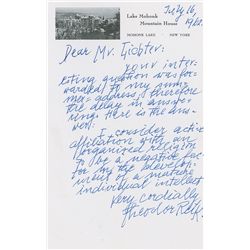 Lake Mohonk
Mountain House
MOHONK LAKE NEW YORK
July 16,
Dear Mr.
your inter-
esting question was for-
warded to my summer
address, therefore
the delay in answer-
ing. Here is the ans-
wer:
I consider active
affiliation with an
organized religion
to be a negative fac-
tor for the develop-
ment of a mature
individual intellect
Very cordially
Theodor Reik